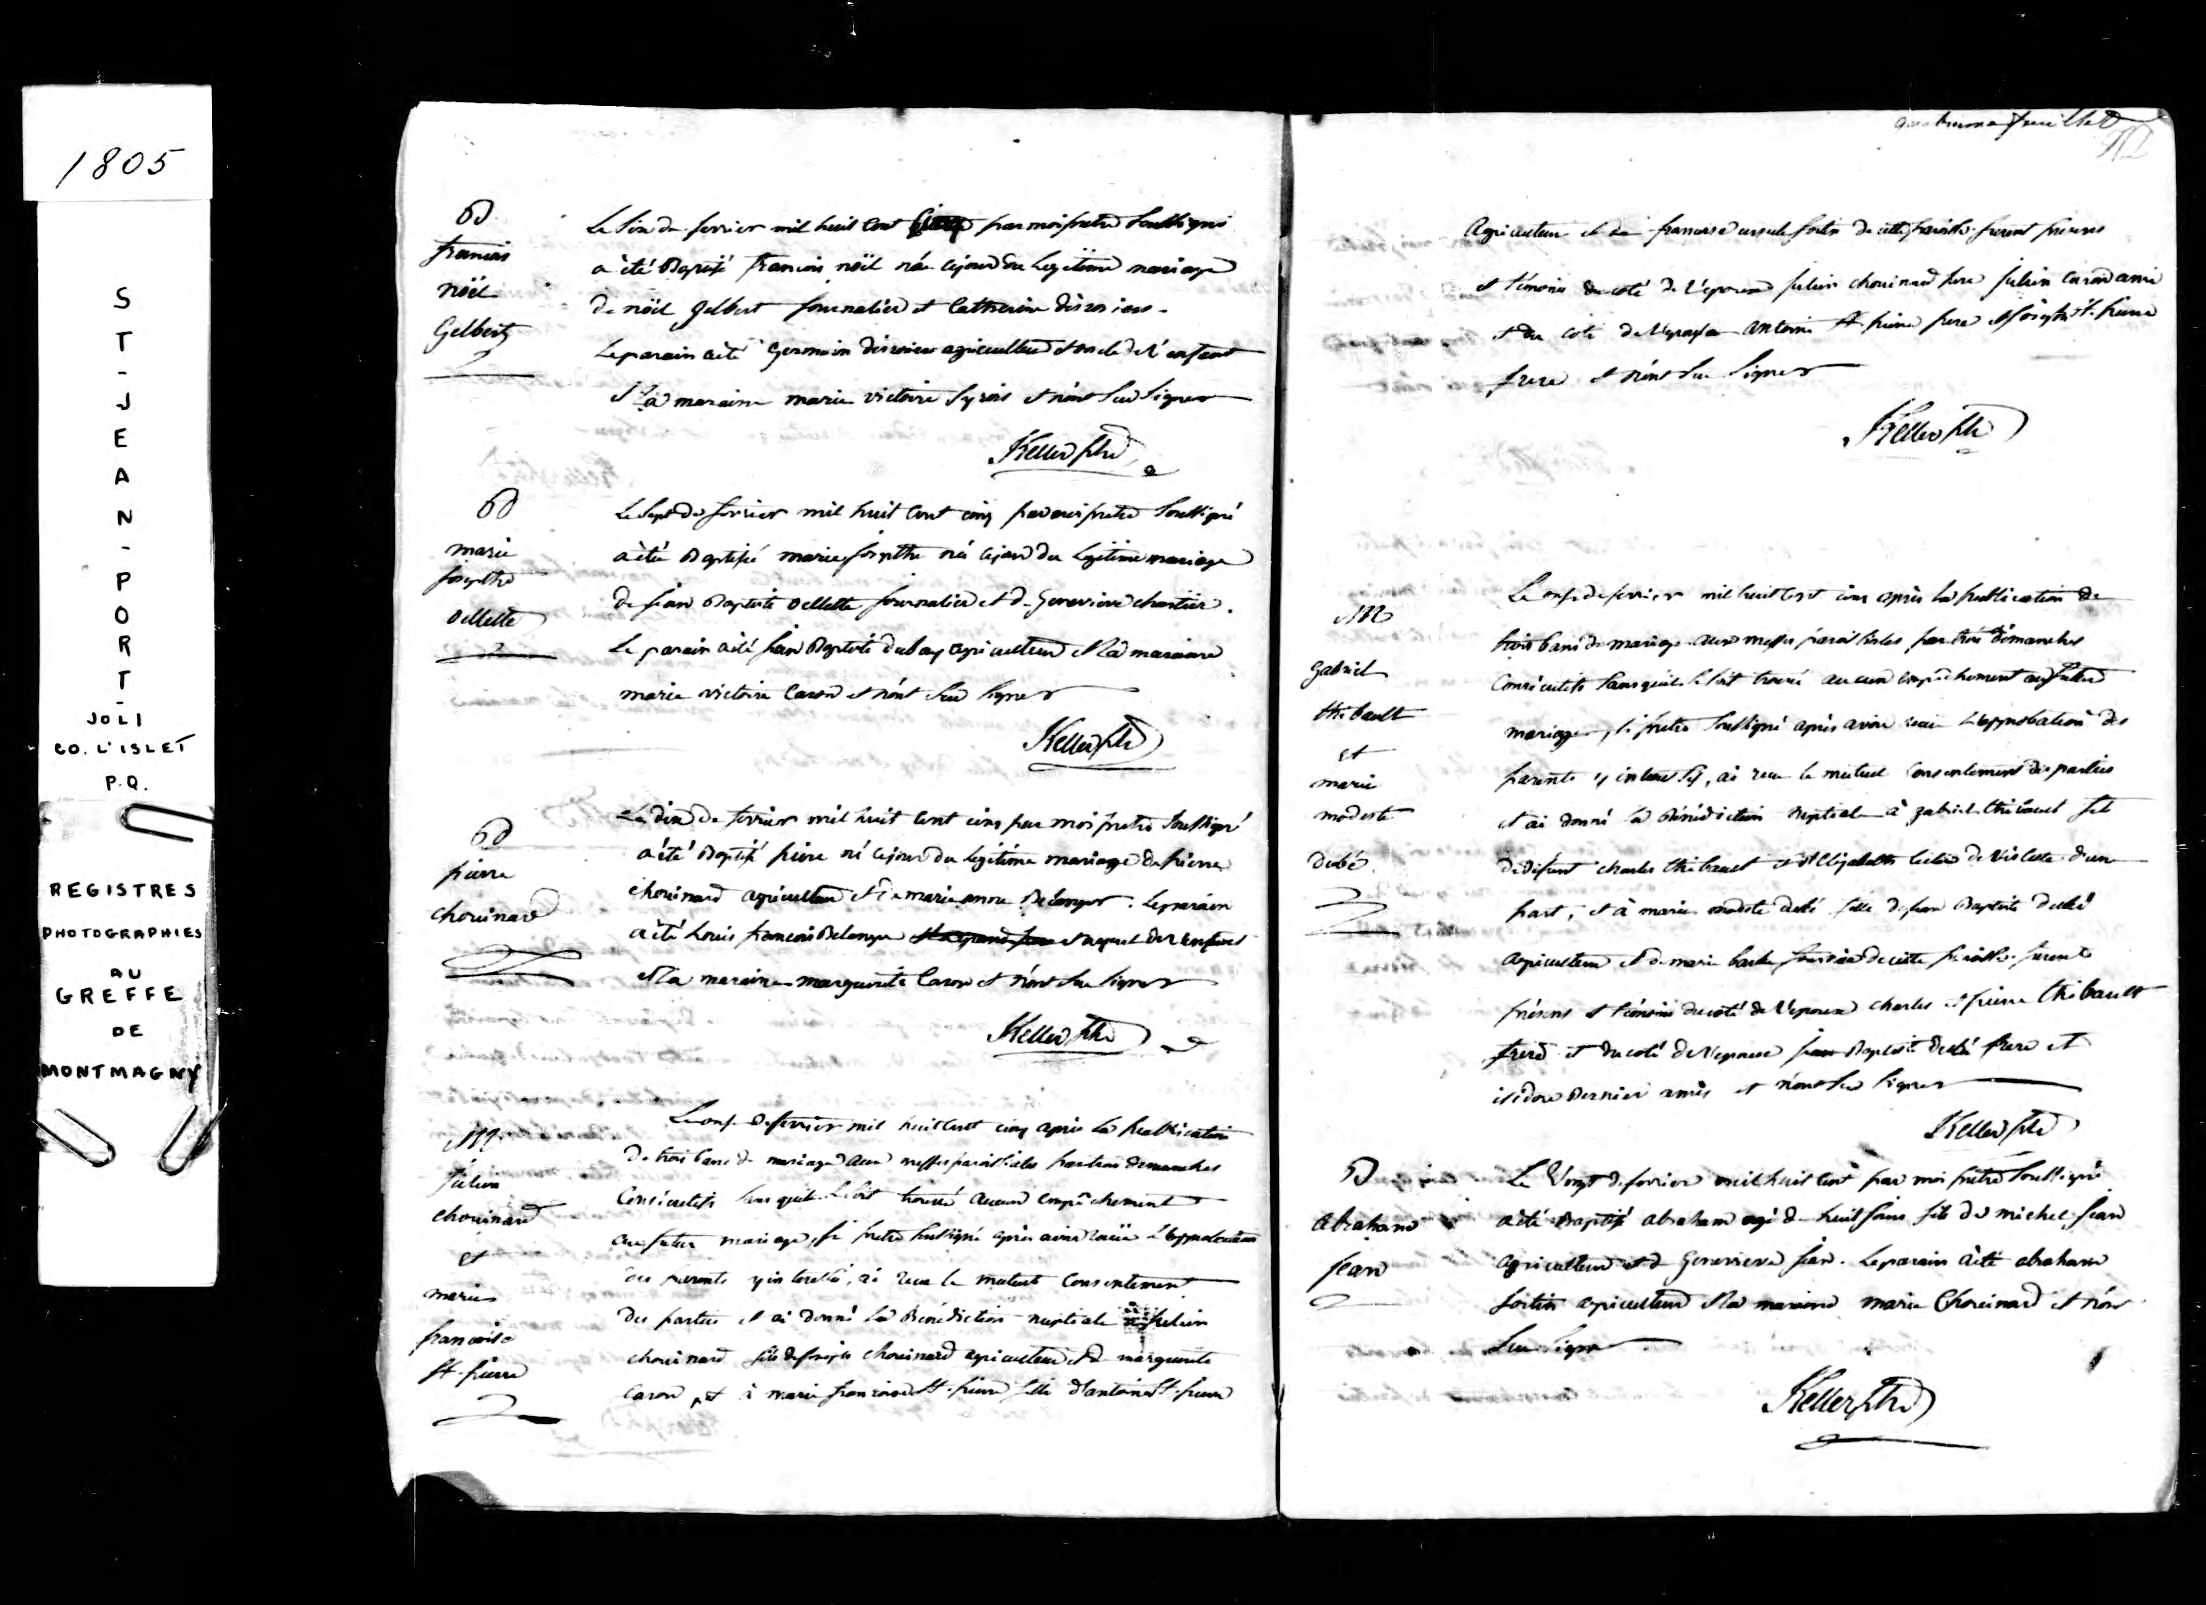 1805
ST-JEAN-PORT-
JOLI
CO. L'ISLET
P.Q.
REGISTRES
PHOTOGRAPHIES
AU
GREFFE
DE
MONTMAGNY
B
francois
nöël
Gelbert
Le Six de fevrier mil huit Cent par moi pretre Soussigné
a été Baptisé francois nöël née cejour du Legitime mariage
de nöël gelbert journalier et Catherine
Leparain aété Germain agriculteur et oncle de l'enfant
et La maraine marie victoire Syrois et n'ont Sçu Signer
Keller ptre
B
marie
josepthe
Ollette
Le Sept de fevrier mil huit Cent cinq par moi pretre Soussigné
a été Baptisé marie josepthe née cejour du Legitime mariage
de jean Baptiste Ollette journalier et de Genevieve chartier.
Le parain aété jean Baptiste dubay agriculteur et La maraine
marie victoire Caron et n'ont Sçu Signer
Keller ptre
B
pierre
chouinard
Le dix de fevrier mil huit Cent cinq par moi pretre Soussigné
a été Baptisé pierre né cejour du Legitime mariage de pierre
chouinard agriculteur et de marie anne Belanger. Leparain
a été Louis francois Belanger de L'enfant
et La maraine marguerite Caron et n'ont Sçu Signer
Keller ptre
M
julien
chouinard
et
marie
francoise
St. pierre
Le onze de fevrier mil huit Cent cinq après La Publication
De trois bans de mariage aux messes paroissiales par trois dimanches
Consécutifs Sans quil Se Soit trouvé aucun empêchement
au futur mariage, je pretre Soussigné après avoir L'approbation
des parents y interessé, ai recu le mutuel Consentement
des parties et ai donné La Bénédiction nuptiale à julien
chouinard fils de chouinard agriculteur et de marguerite
Caron, et à marie francoise St. pierre fille d'antoine St. pierre
feuillet
Agriculteur et de francoise ursule fortin de cette paroisse. furent présens
et témoins du coté de L'epoux julien chouinard pere julien Caron ami
et du coté de L'epouse antoine St. pierre pere et St. pierre
frere et n'ont Sçu Signer
Keller ptre
M
Gabriel
thibault
et
marie
modeste
dubé
Le onze de fevrier mil huit Cent cinq après La publication de
trois bans de mariage aux messes paroissiales par trois dimanches
Consécutifs Sans quil Se Soit trouvé aucun empêchement au futur
mariage, je pretre Soussigné après avoir L'approbation des
parents y interessé, ai recu le mutuel Consentement des parties
et ai donné La Bénédiction nuptiale à gabriel thibault fils
de défunt charles thibault et d'Elizabeth de d'une
part, et à marie modeste dubé fille de jean Baptiste dubé
agriculteur et de marie de cette paroisse. furent
présens et témoins du coté de L'epoux charles et pierre thibault
frere et du coté de L'epouse jean Baptiste dubé frere et
isidore Bernier amis et n'ont Sçu Signer
Keller ptre
B
abraham
jean
Le Vingt de fevrier mil huit Cent par moi pretre Soussigné
a été Baptisé abraham agé de huit jours fils de michel jean
agriculteur et de Genevieve jean. Leparain a été abraham
fortin agriculteur et La maraine marie Chouinard et n'ont
Sçu Signer
Keller ptre